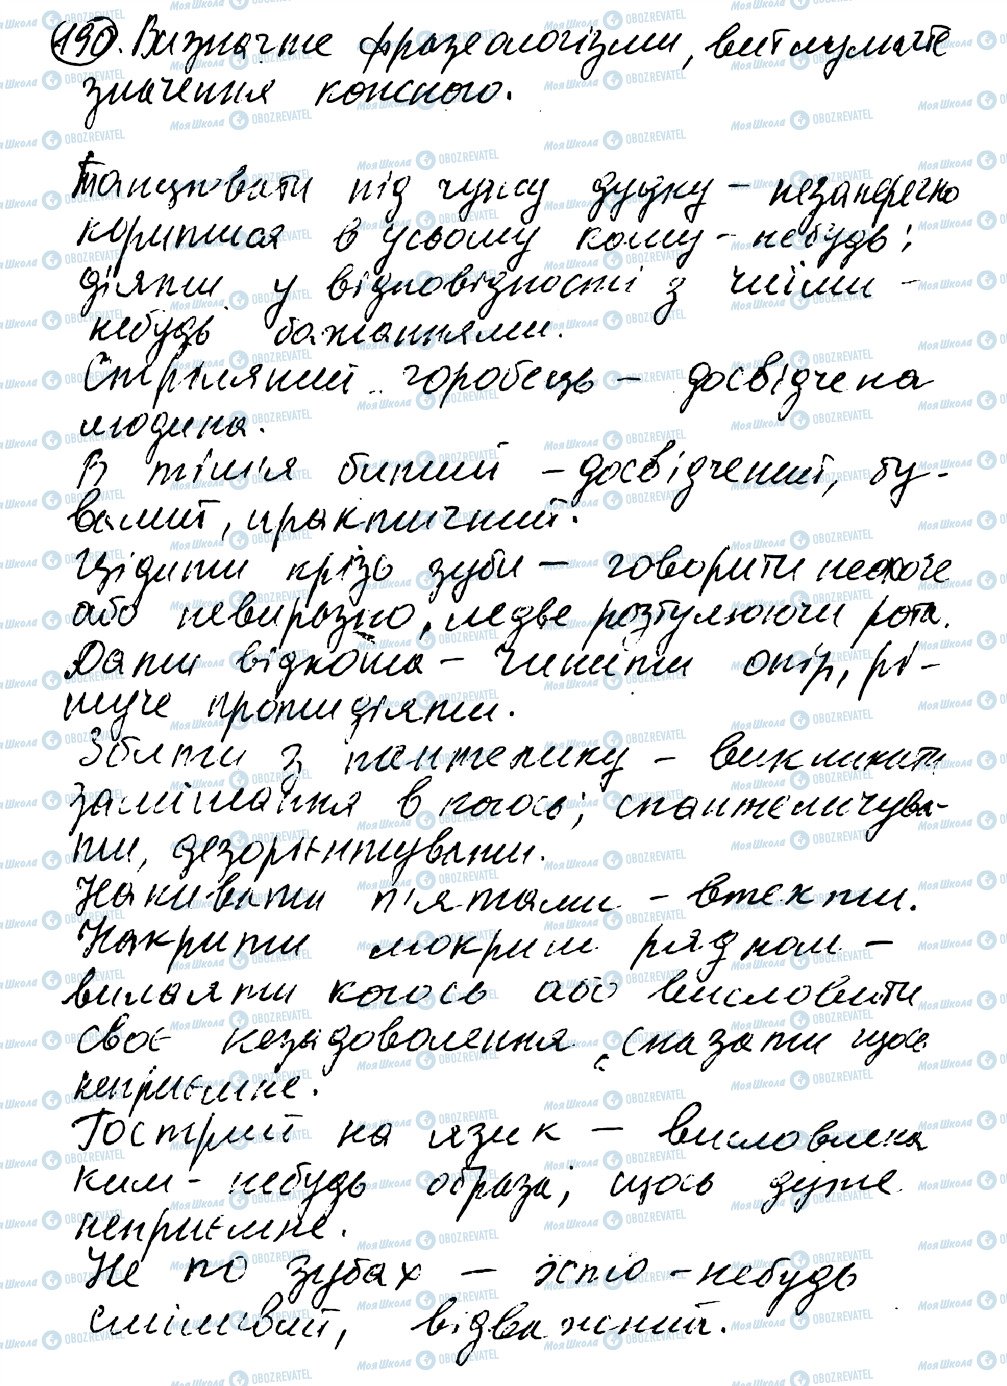 190. Визначте фразеологізми, витлумачте
значення кожного.
Танцювати під чужу дудку – незаперечно
коритися в усьому кому-небудь;
діяти у відповідності з чиїми-
небудь бажаннями.
Стріляний горобець – досвідчена
людина.
В тім'я битий – досвідчений, бу-
валий, практичний.
Цідити крізь зуби – говорити неохоче
або невиразно, ледве розтулюючи рота.
Дати відкоша – чинити опір, рі-
шуче протидіяти.
Збити з пантелику – викликати
замішання в когось; спантеличува-
ти, дезорієнтувати.
Накивати п'ятами – втекти.
Накрити мокрим рядном –
вилаяти когось або висловити
своє незадоволення, сказати щось
неприємне.
Гострий на язик – висловлена
ким-небудь образа; щось дуже
неприємне.
Не по зубах – хтло-небудь
сміливий, відважний.